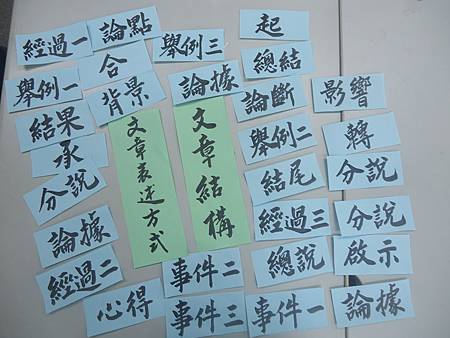 經過一
論點
舉例三
起
合
總結
舉例一
背景
論據
論斷
影響
結果
文章表述方式
文章結構
舉例二
轉
承
分說
結尾
分說
論據
經過三
分說
經過二
事件二
總說
啟示
心得
事件三
事件一
論據